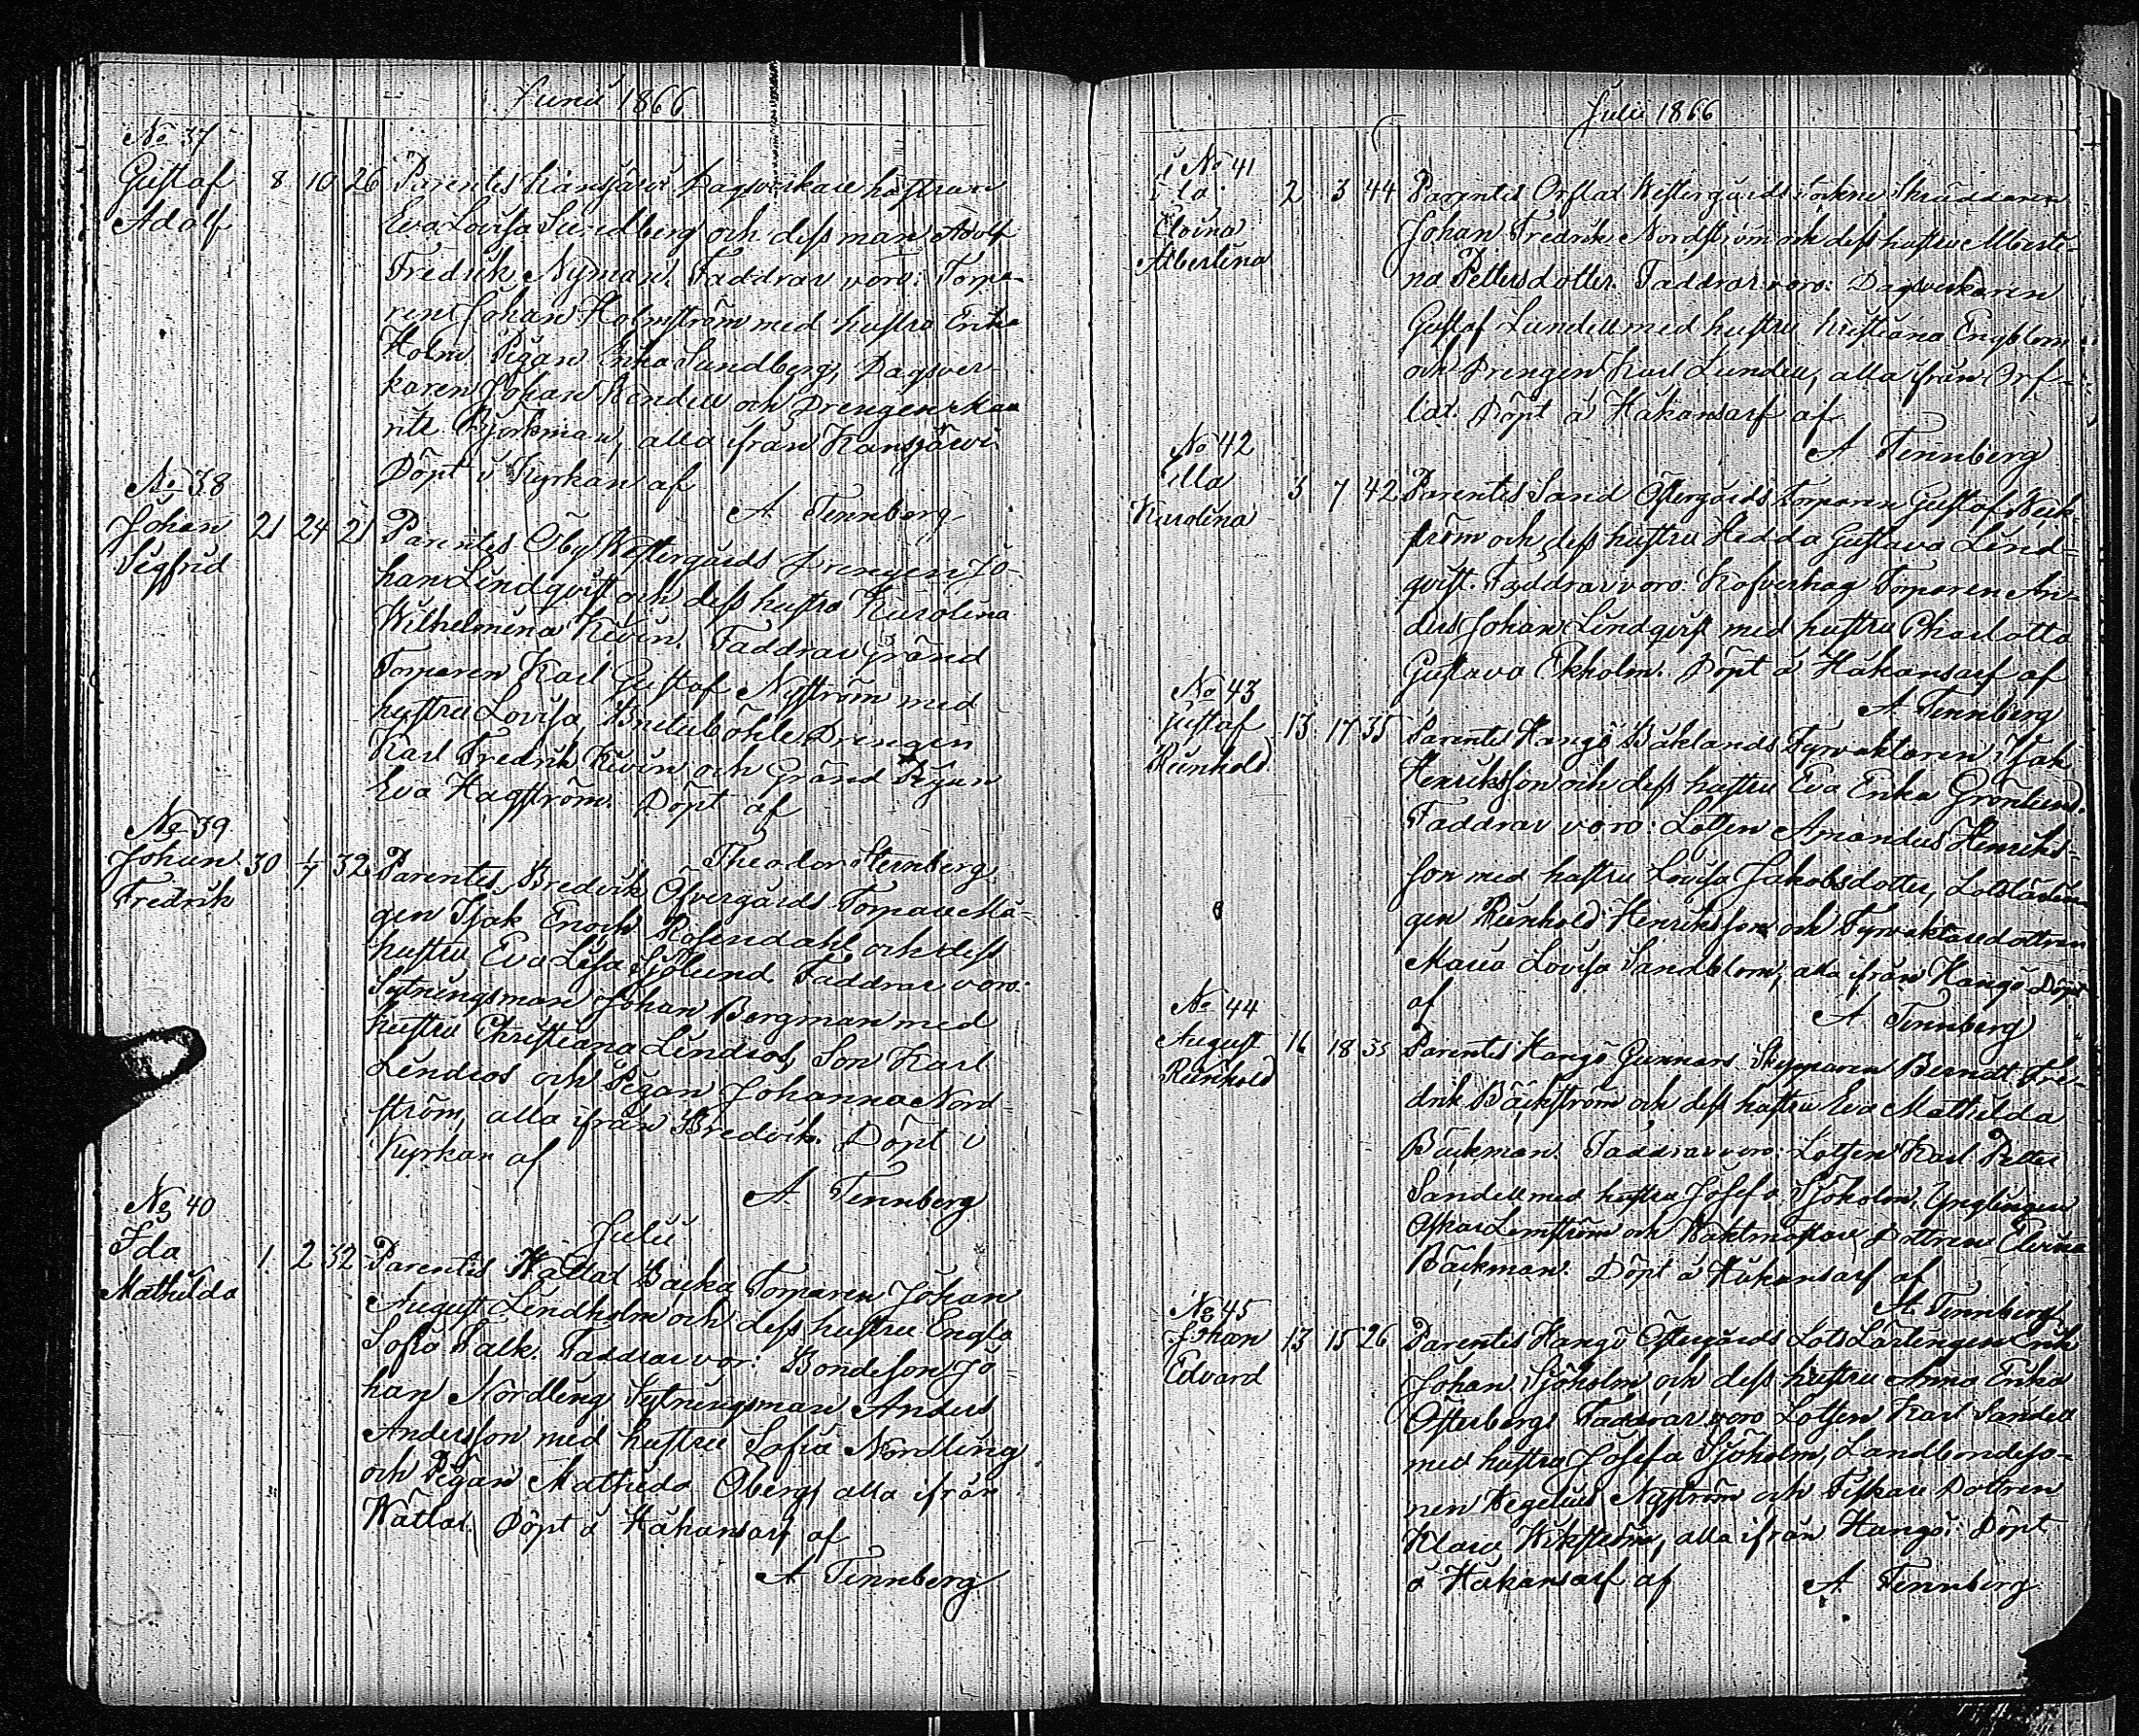 Junii 1866
No 37
Gustaf 8 10 26 Parentes Hansjärvi Dagsverkare hustrun
Adolf Eva Lovisa Sundberg och dess man Adolf
Fredrik Nyman. Faddrar voro: Torpa-
ren Johan Holmström med hustro Erika
Holm Pigan Erika Sundberg, Dagsver-
karen Johan Wendell och Drengen
Björkman, alla ifrån Hansjärvi
Döpt i Kyrkan af
A Tennberg
No 38
Johan 21 24 21 Parentes Öby Westergårds Drengen Jo-
Sigfrid han Lindqvist och dess hustro Karolina
Wilhelmina Kevin. Faddrar Gränd
Torparen Karl Gustaf Nyström med
hustru Lovisa, Drengen
Karl Fredrik Kevin och Gränd Pigan
Eva Hagström. Döpt af
Theodor Sternberg
No 39
Johan 30 1/7 32 Parentes Bredvik Öfvergårds Torpare Må-
Fredrik gen Isak Enoch Rosendahl och dess
hustru Eva Lisa Sjölund. Faddrar voro:
Sytningsman Johan Bergman med
hustru Christiana Lindroos, Son Karl
Lindroos och Pigan Johanna Nord-
ström, alla ifrån Bredvik. Döpt i
Kyrkan af
A Tennberg
Julii
No 40
Ida 1 2 32 Parentes Wättlax Backa Torparen Johan
Mathilda August Lindholm och dess hustru Engla
Sofia Falk. Faddrar vor: Bondeson Jo-
han Nordling Sytningsman Anders
Andersson med hustru Sofia Nordling
och Pigan Mathilda Öberg, alla ifrån
Wättlax. Döpt å Håkansarf af
A Tennberg
Julii 1866
No 41
Ida 2 3 44 Parentes Orslax Westergårds Skräddaren
Elvina Johan Fredrik Nordström och dess hustru Alberti-
Albertina na Pettersdotter. Faddrar voro: Dagsverkaren
Gustaf Lundell med hustru Kristiana Engblom
och Drengen Karl Lundell, alla ifrån Ors-
lax. Döpt å Håkansarf af
A Tennberg
No 42
Ulla 3 7 42 Parentes Sand Östergårds Torparen Gustaf Weck-
Karolina ström och dess hustru Hedda Gustava Lind-
qvist. Faddrar voro: Kofverhag Torparen An-
ders Johan Lindqvist med hustru Charlotta
Gustava Ekholm. Döpt å Håkansarf af
A Tennberg
No 43
Gustaf 13 17 35 Parentes Hangö Båklands Fyrvaktaren Isak
Reinhold Henriksson och dess hustru Eva Erika Grönlund.
Faddrar voro: Lotsen Amandus Henriks-
son med hustru Lovisa Jakobsdotter, Lotslärlin-
gen Reinhold Henriksson och Fyrvaktaredottren
Maria Lovisa Sandblom, alla ifrån Hangö Döpt
af
A Tennberg
No 44
August 16 18 35 Parentes Hangö Gunnars Skepparen Berndt Fre-
Reinhold drik Bäckström och dess hustru Eva Mathilda
Bäckman. Faddrar voro: Lotsen Karl Petter
Sandell med hustru Josefa Sjöholm, Ynglingen
Oskar Lemström och Waktmästare Dottren Elvina
Bäckman. Döpt å Håkansarf af
A Tennberg
No 45
Johan 13 15 26 Parentes Hangö Östergårds Lots Lärlingen Erik
Edvard Johan Sjöholm och dess hustru Anna Erika
Österberg. Faddrar voro Lotsen Karl Sandell
med hustru Josefa Sjöholm, Landbondeso-
nen Hegelius Nyström och Fiskare Dottren
Klara Wikström, alla ifrån Hangö. Döpt
å Håkansarf af A Tennberg